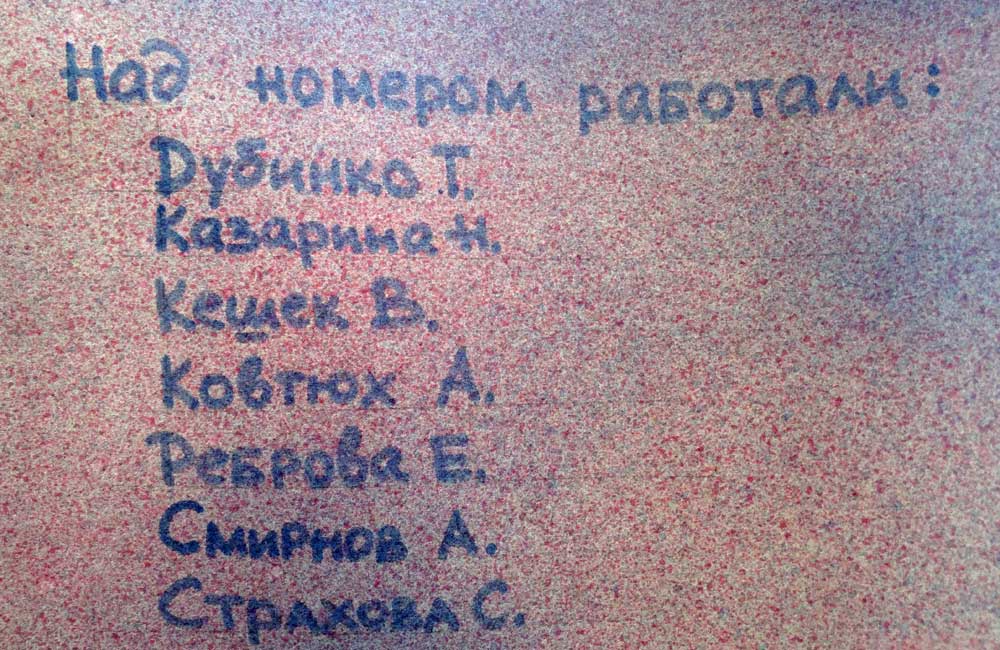 Над номером работали:
Дубинко Т.
Казарина Н.
Кешек В.
Ковтюх А.
Реброва Е.
Смирнов А.
Страхова С.